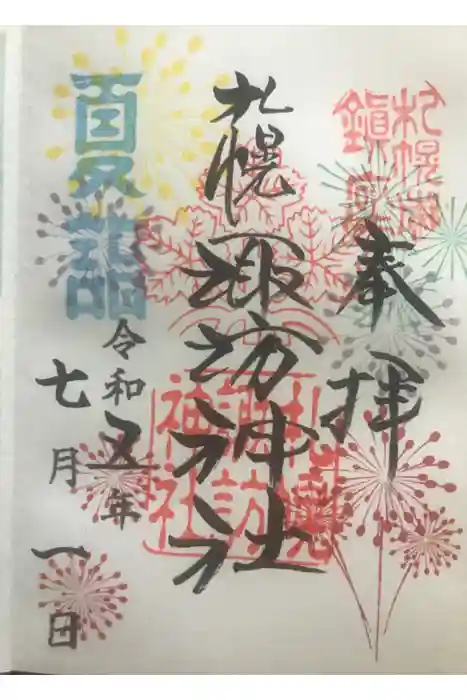 奉拝
札幌諏訪神社
夏詣
令和五年
七月一日
札幌諏訪神社